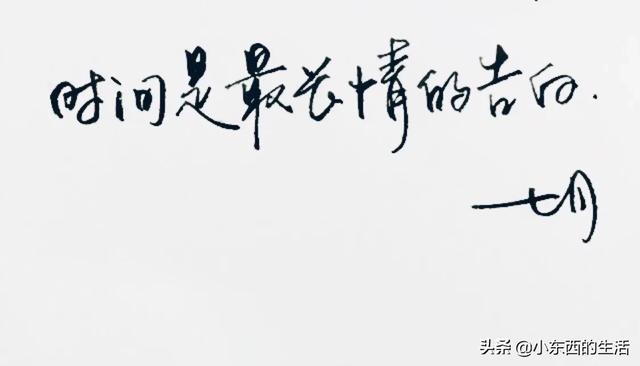 时间是最长情的告白.
七月
头条 @小东西的生活